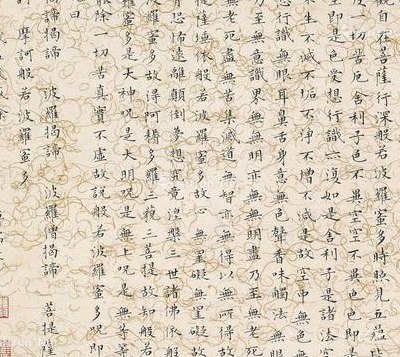 觀自在菩薩行深般若波羅蜜多時照見五蘊
度一切苦厄舍利子色不異空空不異色色即是
空即是色受想行識亦復如是舍利子是諸法空
不生不滅不垢不淨不增不減是故空中無色無
想行識無眼耳鼻舌身意無色聲香味觸法無眼
乃至無意識界無無明亦無無明盡乃至無老死
無老死盡無苦集滅道無智亦無得以無所得故
提薩埵依般若波羅蜜多故心無罣礙無罣礙故
有恐怖遠離顛倒夢想究竟涅槃三世諸佛依般
波羅蜜多故得阿耨多羅三藐三菩提故知般若
羅蜜多是大神呪是大明呪是無上呪是無等等
能除一切苦真實不虛故說般若波羅蜜多呪即
曰
揭諦 波羅揭諦 波羅僧揭諦 菩提薩
摩訶般若波羅蜜多